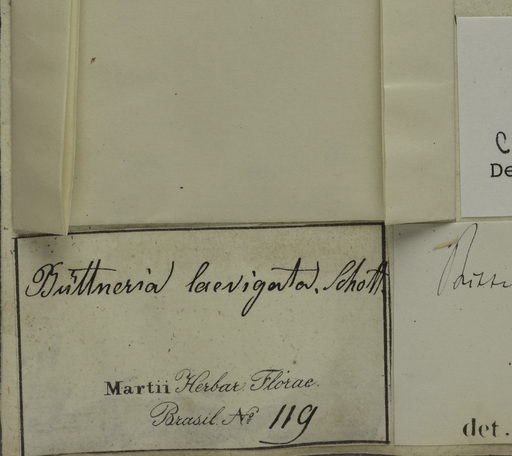 Büttneria laevigata. Schott.
Martii Herbar. Florae
Brasil. No 119
C
De
det.